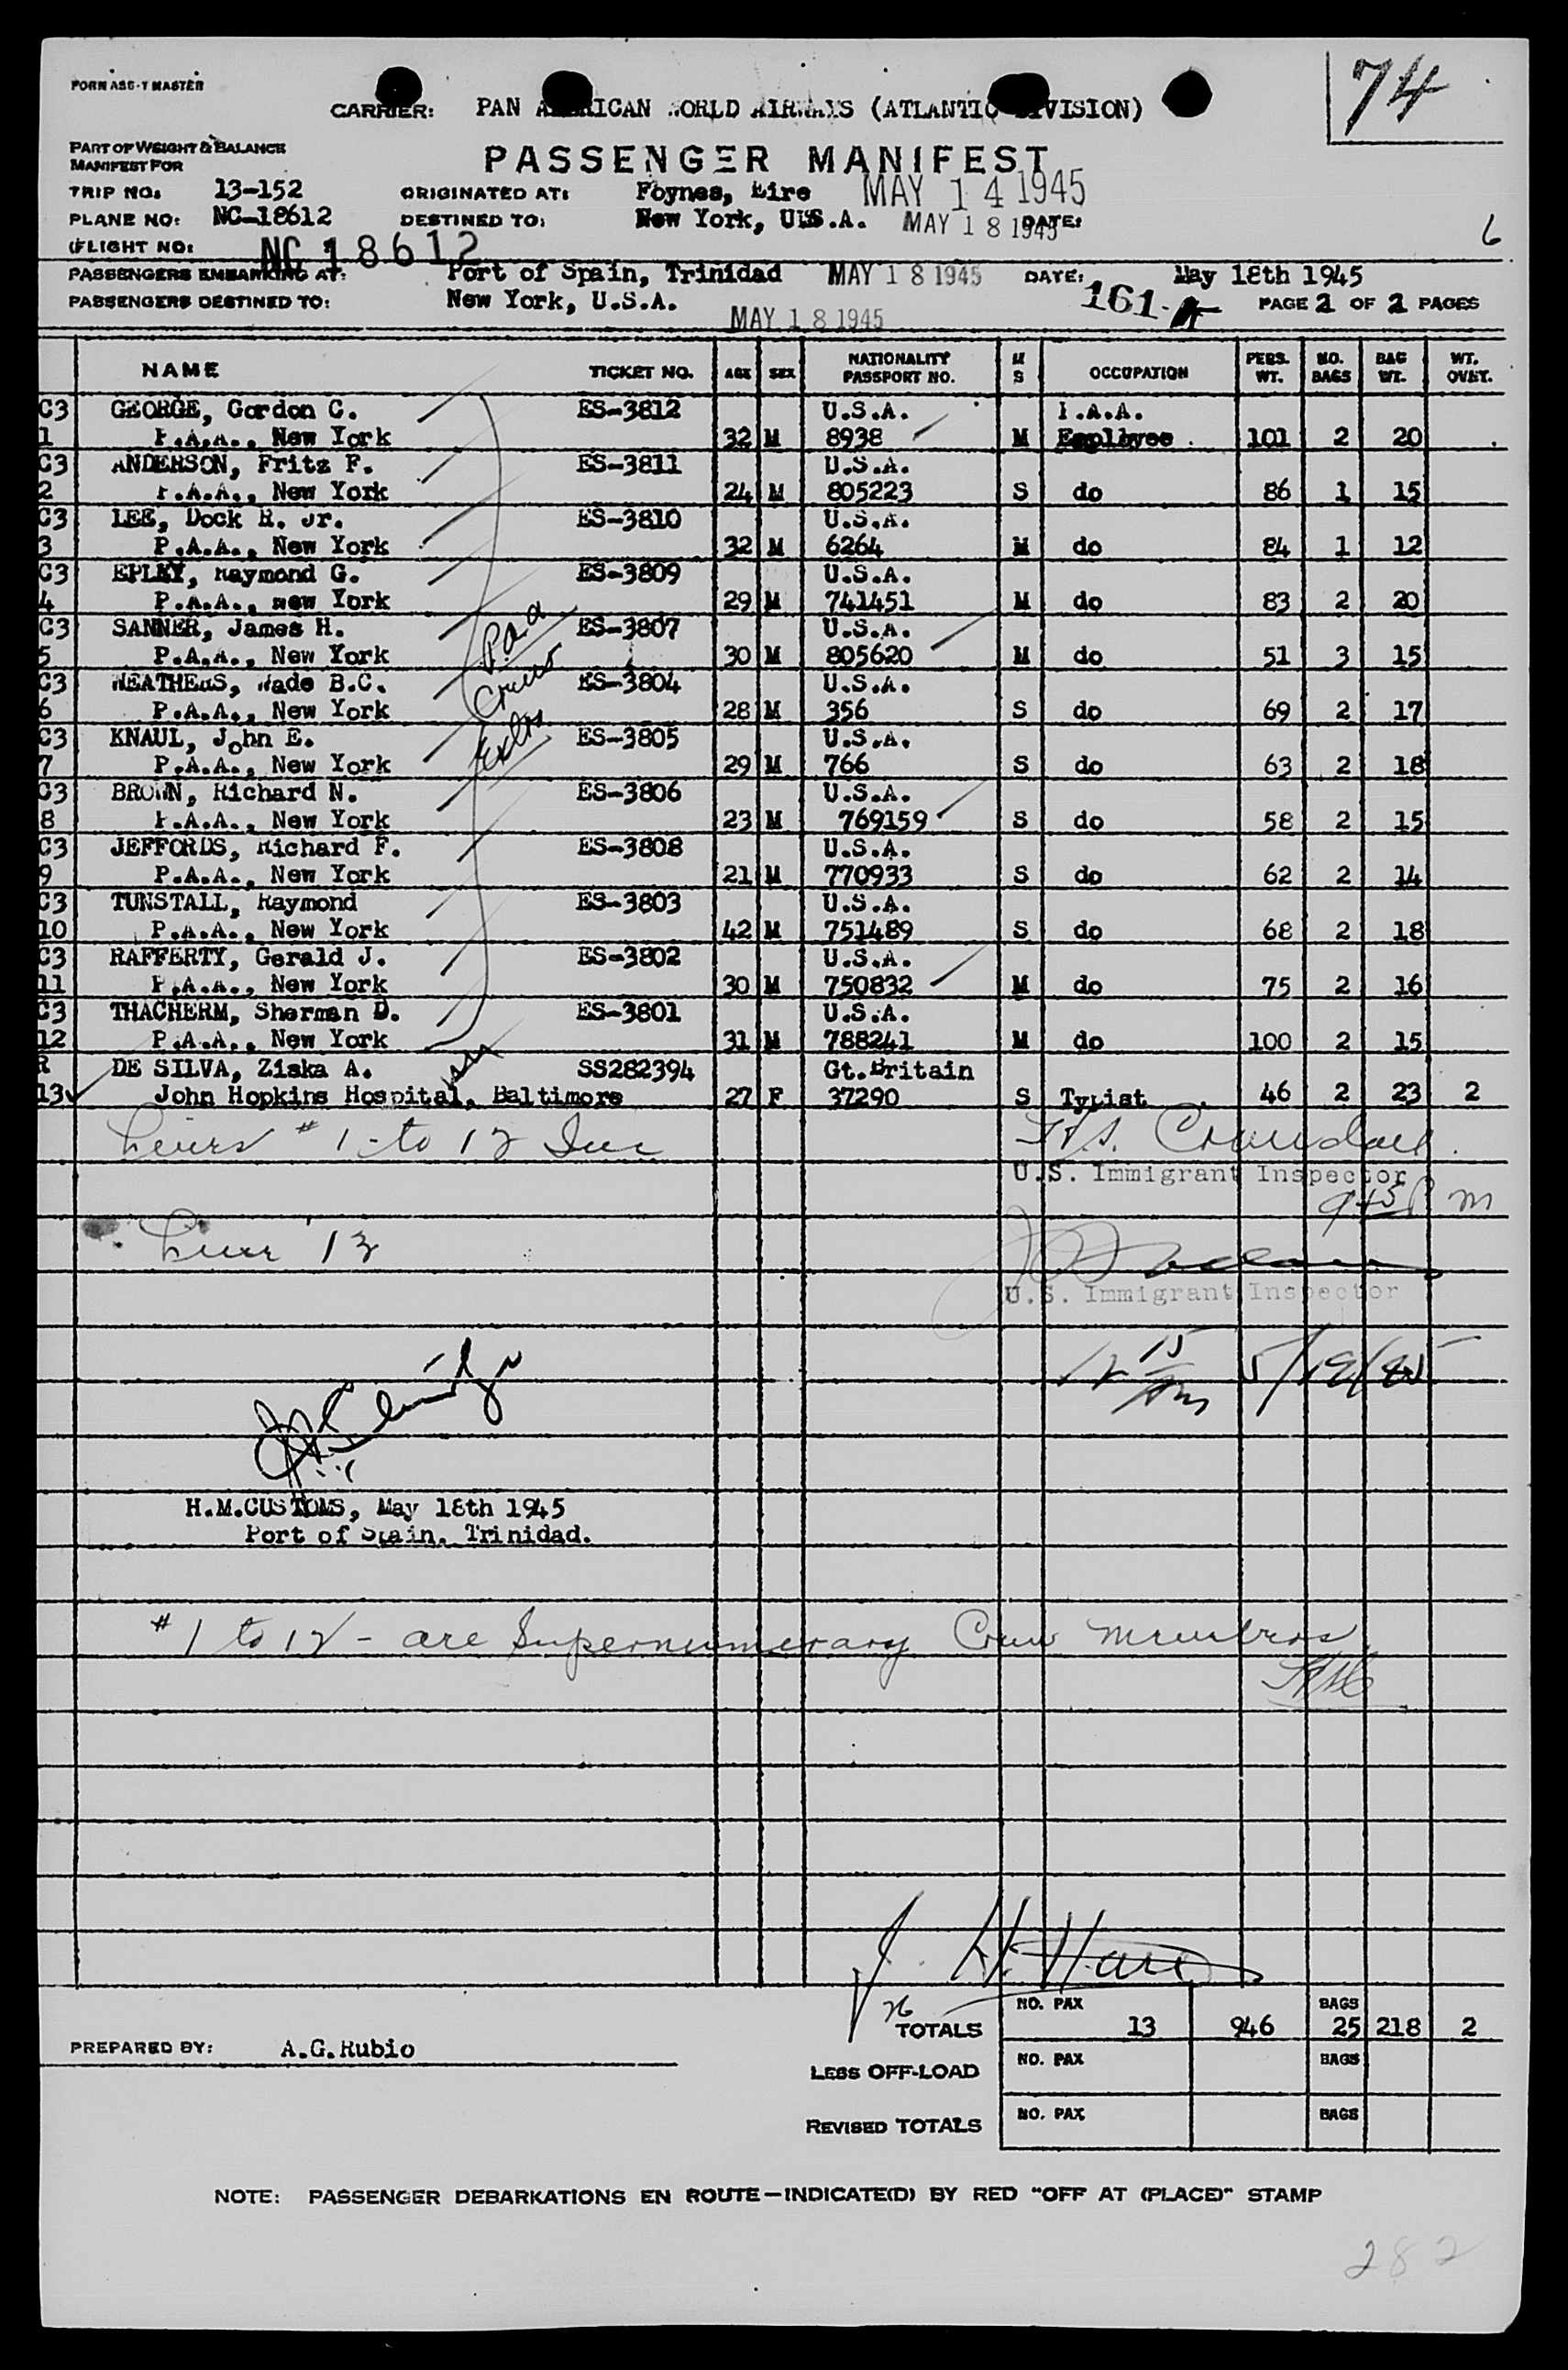 FORM ASC-7 MASTER
74
CARRIER: PAN AMERICAN WORLD AIRWAYS (ATLANTIC DIVISION)
PART OF WEIGHT & BALANCE
MANIFEST FOR
PASSENGER MANIFEST
TRIP NO: 13-152 ORIGINATED AT: Foynes, Eire MAY 14 1945
PLANE NO: NC-18612 DESTINED TO: New York, U.S.A. MAY 18 1945 DATE:
6
(FLIGHT NO: NC 18612
PASSENGERS EMBARKING AT: Port of Spain, Trinidad MAY 18 1945 DATE: May 18th 1945
PASSENGERS DESTINED TO: New York, U.S.A. MAY 18 1945 161- PAGE 2 OF 2 PAGES
NAME TICKET NO. AGE SEX NATIONALITY PASSPORT NO. M S OCCUPATION PERS. WT. NO. BAGS BAG WT. WT. OVWT.
C3 GEORGE, Gordon C. ES-3812 U.S.A. P.A.A.
1 P.A.A., New York 32 M 8938 M Employee 101 2 20
C3 ANDERSON, Fritz F. ES-3811 U.S.A.
2 P.A.A., New York 24 M 805223 S do 86 1 15
C3 LEE, Dock R. Jr. ES-3810 U.S.A.
3 P.A.A., New York 32 M 6264 M do 84 1 12
C3 EPLEY, Raymond G. ES-3809 U.S.A.
4 P.A.A., New York 29 M 741451 M do 83 2 20
C3 SANNER, James H. ES-3807 U.S.A.
5 P.A.A., New York 30 M 805620 M do 51 3 15
C3 WEATHERS, Wade B.C. ES-3804 U.S.A.
6 P.A.A., New York 28 M 356 S do 69 2 17
C3 KNAUL, John E. ES-3805 U.S.A.
7 P.A.A., New York 29 M 766 S do 63 2 18
C3 BROWN, Richard N. ES-3806 U.S.A.
8 P.A.A., New York 23 M 769159 S do 58 2 15
C3 JEFFORDS, Richard F. ES-3808 U.S.A.
9 P.A.A., New York 21 M 770933 S do 62 2 14
C3 TUNSTALL, Raymond ES-3803 U.S.A.
10 P.A.A., New York 42 M 751489 S do 68 2 18
C3 RAFFERTY, Gerald J. ES-3802 U.S.A.
11 P.A.A., New York 30 M 750832 M do 75 2 16
C3 THACHERM, Sherman D. ES-3801 U.S.A.
12 P.A.A., New York 31 M 788241 M do 100 2 15
R DE SILVA, Ziska A. SS282394 Gt.Britain
13 John Hopkins Hospital, Baltimore 27 F 37290 S Typist 46 2 23 2
Paa
Crew
# 1 - to 12 Inc
U.S. Immigrant Inspector
9 45 P m
13
U.S. Immigrant Inspector
12 15 am 5/19/45
H.M.CUSTOMS, May 18th 1945
Port of Spain, Trinidad.
# 1 to 12 - are Supernumerary Crew members
J. H. Hart
TOTALS NO. PAX 13 946 BAGS 25 218 2
PREPARED BY: A.G.Rubio
LESS OFF-LOAD NO. PAX BAGS
REVISED TOTALS NO. PAX BAGS
NOTE: PASSENGER DEBARKATIONS EN ROUTE—INDICATE(D) BY RED "OFF AT (PLACE)" STAMP
282